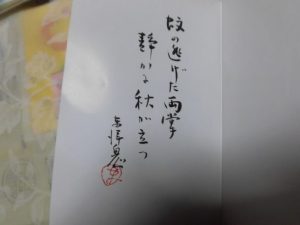 蚊の逃げた両掌
静かな秋が立つ